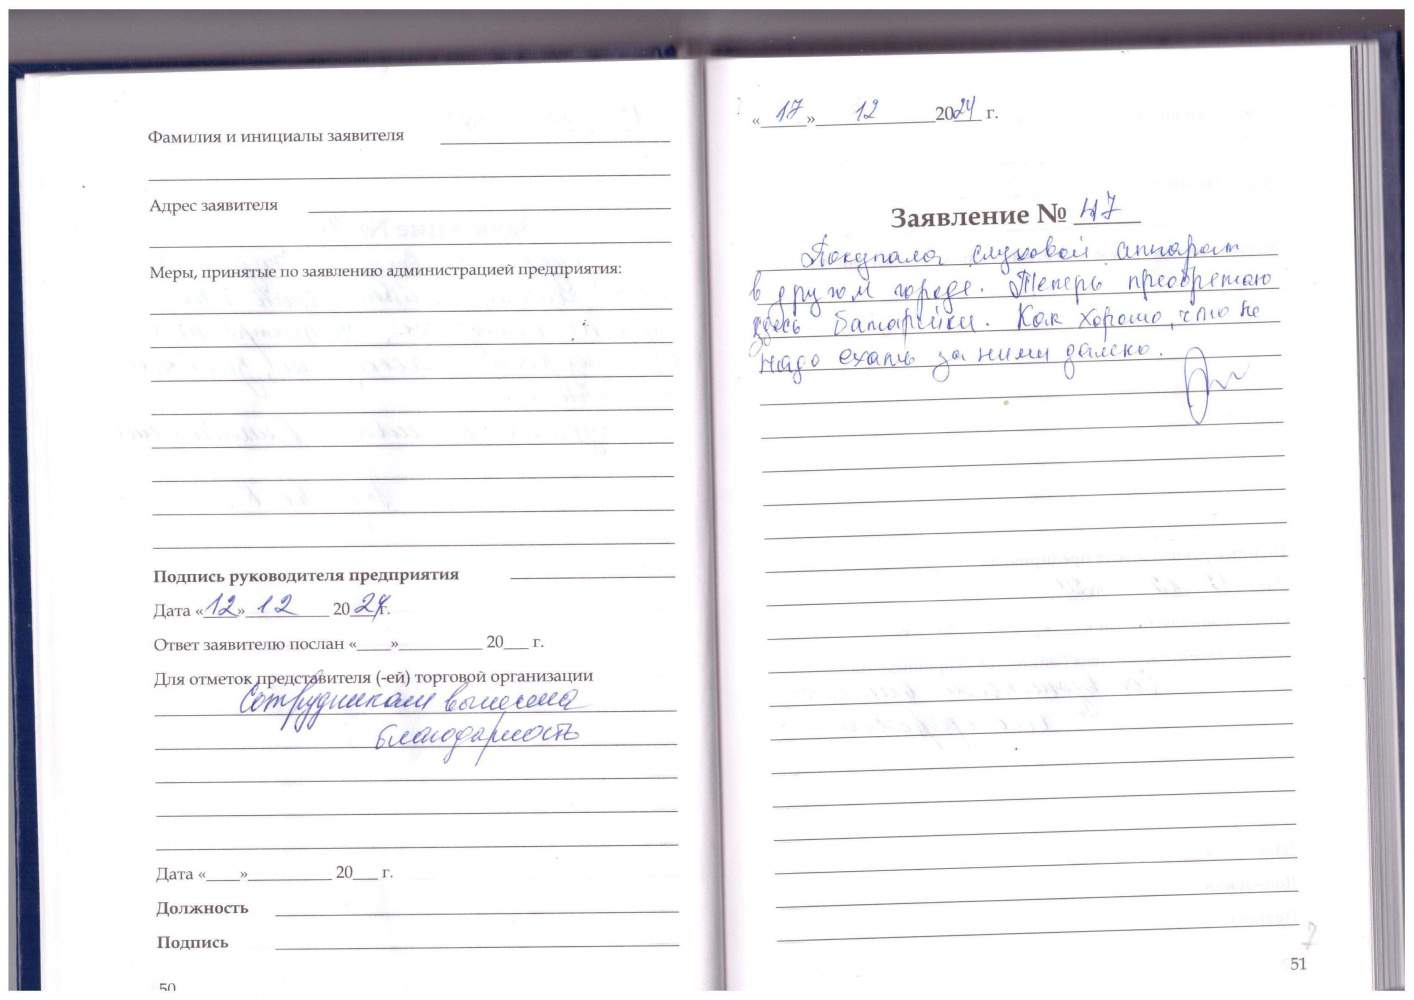 Фамилия и инициалы заявителя
Адрес заявителя
Меры, принятые по заявлению администрацией предприятия:
Подпись руководителя предприятия
Дата «12» 12 2024г.
Ответ заявителю послан «____»__________ 20___ г.
Для отметок представителя (-ей) торговой организации
Сотрудникам вынесена
благодарность
Дата «____»__________ 20___ г.
Должность
Подпись
50
«17» 12 2024 г.
Заявление № 47
Покупала слуховой аппарат
в другом городе. Теперь преобретаю
здесь батарейки. Как хорошо, что не
надо ехать за ними далеко.
7
51